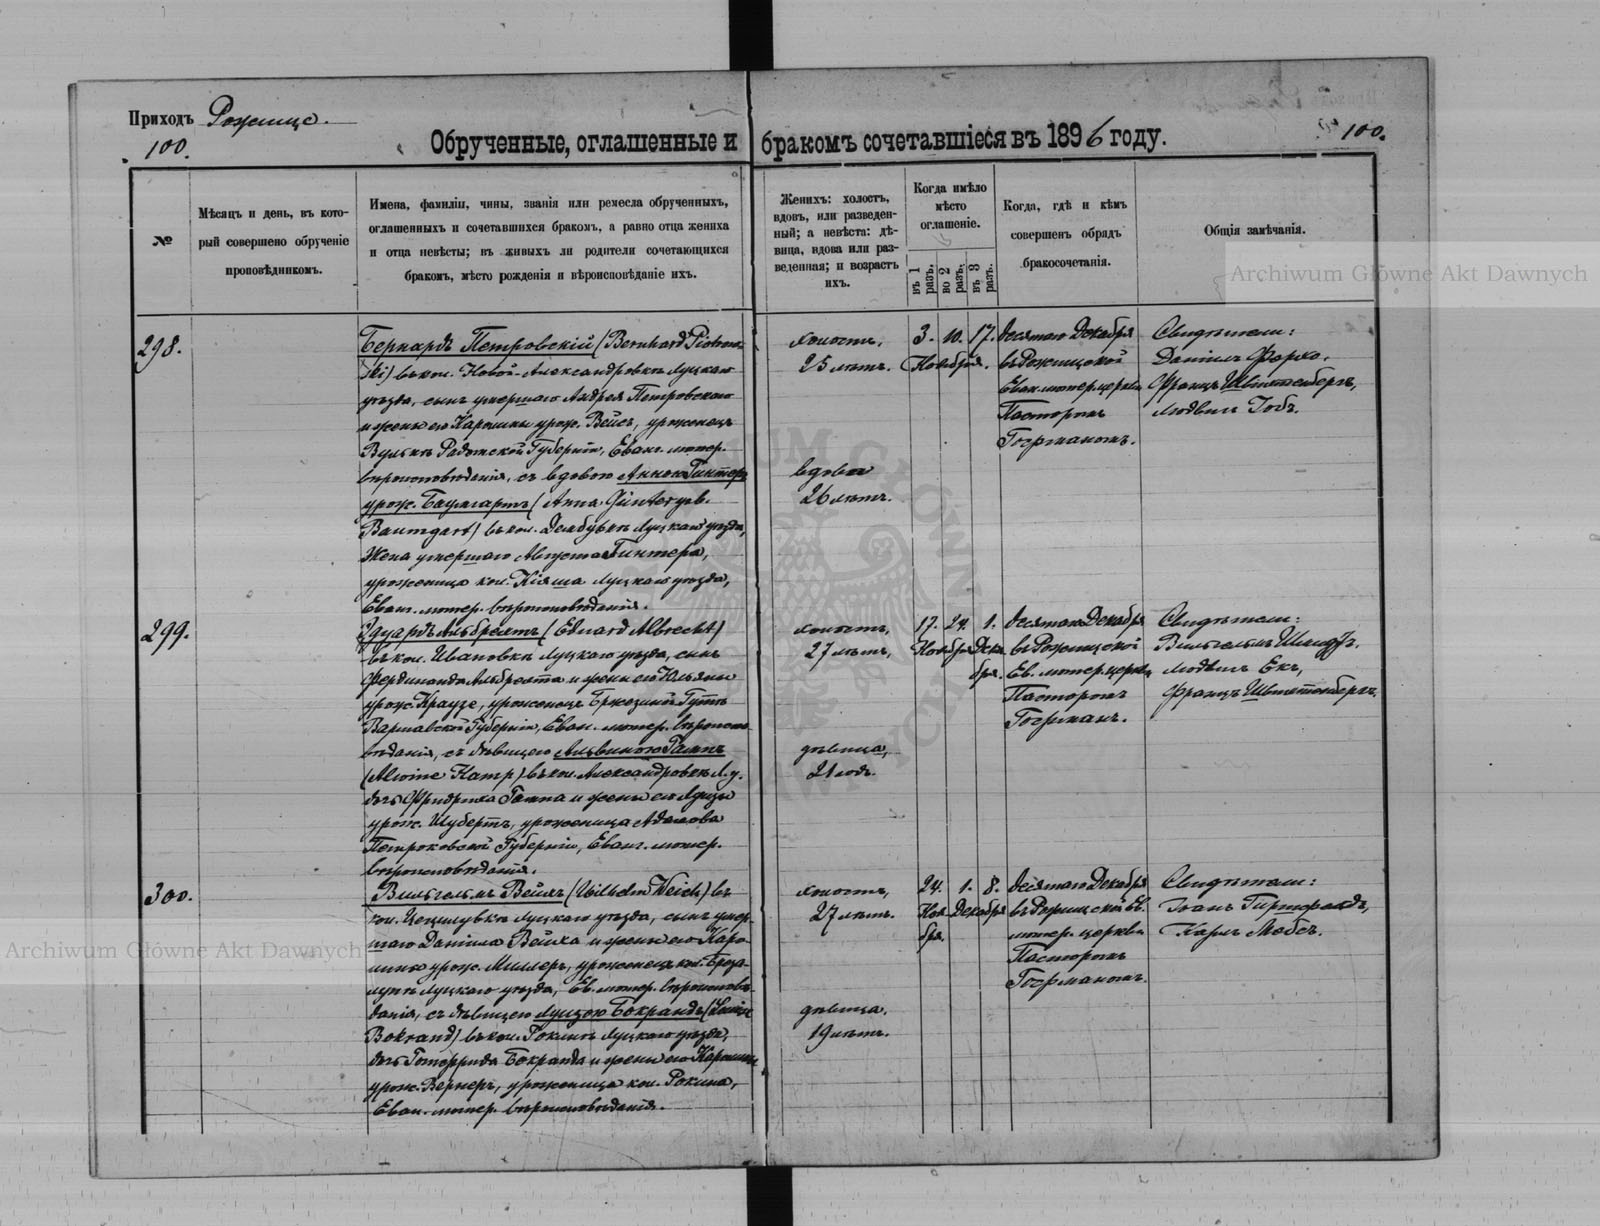 Приходъ Рожище.
100.
Обрученные, оглашенные и бракомъ сочетавшіеся въ 1896 году.
100.
№
Мѣсяцъ и день, въ кото-
рый совершено обрученіе
проповѣдникомъ.
Имена, фамиліи, чины, званія или ремесла обрученныхъ,
оглашенныхъ и сочетавшихся бракомъ, а равно отца жениха
и отца невѣсты; въ живыхъ ли родители сочетающихся
бракомъ, мѣсто рожденія и вѣроисповѣданіе ихъ.
Женихъ: холостъ,
вдовъ, или разведен-
ный; а невѣста: дѣ-
вица, вдова или раз-
веденная; и возрастъ
ихъ.
Когда имѣло
мѣсто
оглашеніе.
въ 1 разъ.
во 2 разъ.
въ 3 разъ.
Когда, гдѣ и кѣмъ
совершенъ обрядъ
бракосочетанія.
Общія замѣчанія.
Archiwum Główne Akt Dawnych
298.
Бернардъ Петровскій (Bernhard Piotrow-
ski) въ кол. Новой-Александровкѣ Луцкаго
уѣзда, сынъ умершаго Андрея Петровскаго
и жены его Каролины урож. Вейсъ, уроженецъ
Вулькѣ Радомской Губерніи, Еванг. лютер.
вѣроисповѣданія, съ вдовою Анною Гинтеръ
урож. Баумгартъ (Anna Günter geb.
Baumgart) въ кол. Дембувкѣ Луцкаго уѣзда,
жена умершаго Августа Гинтера,
уроженица кол. Кіяша Луцкаго уѣзда,
Еванг. лютер. вѣроисповѣданія.
холостъ,
25 лѣтъ.
вдова
26 лѣтъ.
3. 10. 17.
Ноября.
десятаго Декабря
въ Рожищской
Еван. лютер. церкви
Пасторомъ
Госрманомъ.
Свидѣтели:
Даніилъ Фархо,
Францъ Швиттенбергъ,
Людвигъ Іобъ.
299.
Эдуардъ Альбрехтъ (Eduard Albrecht)
въ кол. Ивановкѣ Луцкаго уѣзда, сынъ
Фердинанда Альбрехта и жены его Юльяны
урож. Краузе, уроженецъ Гуттъ
Варшавской Губерніи, Еван. лютер. вѣроиспо-
вѣданія, съ дѣвицею Альвиною Гампъ
(Alwine Hamp) въ кол. Александровкѣ Л. у.
дочь Фридриха Гампа и жены его Луизы
урож. Шубертъ, уроженица Адамова
Петроковской Губерніи, Еванг. лютер.
вѣроисповѣданія.
холостъ,
27 лѣтъ,
дѣвица,
21 годъ.
17. 24. 1.
Ноября Дека
бря.
десятаго Декабря
въ Рожищской
Ев. лютер. церкви
Пасторомъ
Госрманъ.
Свидѣтели:
Вильгельмъ
Людвигъ Екъ,
Францъ Швиттенбергъ.
300.
Вильгельмъ Вейхъ (Wilhelm Weich) въ
кол. Цецилувкѣ Луцкаго уѣзда, сынъ умер-
шаго Даніила Вейха и жены его Каро-
лины урож. Миллеръ, уроженецъ кол.
Луцкаго уѣзда, Ев. лютер. вѣроисповѣ-
данія, съ дѣвицею Луизою Бокрандъ (Louise
Bokrand) въ кол. Рокинѣ Луцкаго уѣзда,
дочь Готфрида Бокранда и жены его Каролины
урож. Вернеръ, уроженица кол. Рокина,
Еван. лютер. вѣроисповѣданія.
холостъ,
27 лѣтъ.
дѣвица.
19 лѣтъ.
24. 1. 8.
Ноя- Декабря
бря.
десятаго Декабря
въ Рожищской Ев.
лютер. церкви
Пасторомъ
Госрманомъ.
Свидѣтели:
Іоганъ
Карлъ Мебсъ.
Archiwum Główne Akt Dawnych